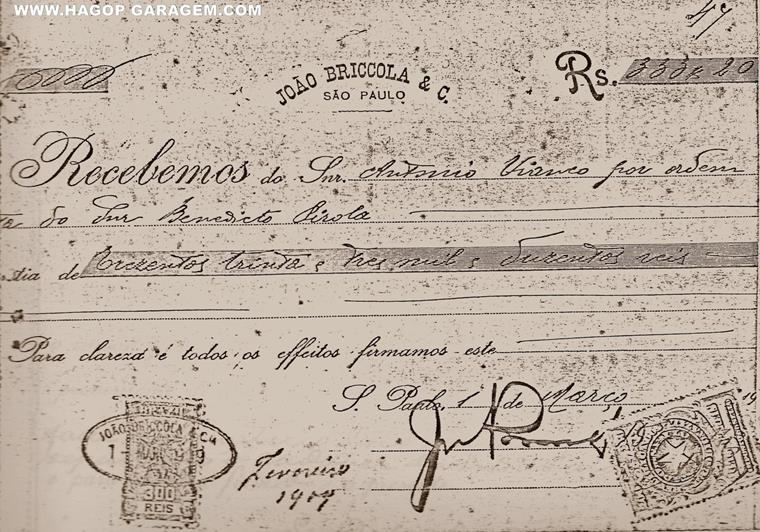 WWW.HAGOP GARAGEM.COM
JOÃO BRICCOLA & C.
SÃO PAULO
Rs. 333$20
Recebemos do Snr. Antonio Vianco por ordem
do Snr Benedicto Pirola
tia de trezentos trinta e tres mil e duzentos reis
Para clareza é todos os effeitos firmamos este
S. Paulo, 1 de Março 19
JOÃO BRICCOLA & Cia
300
REIS
Fevereiro
1909